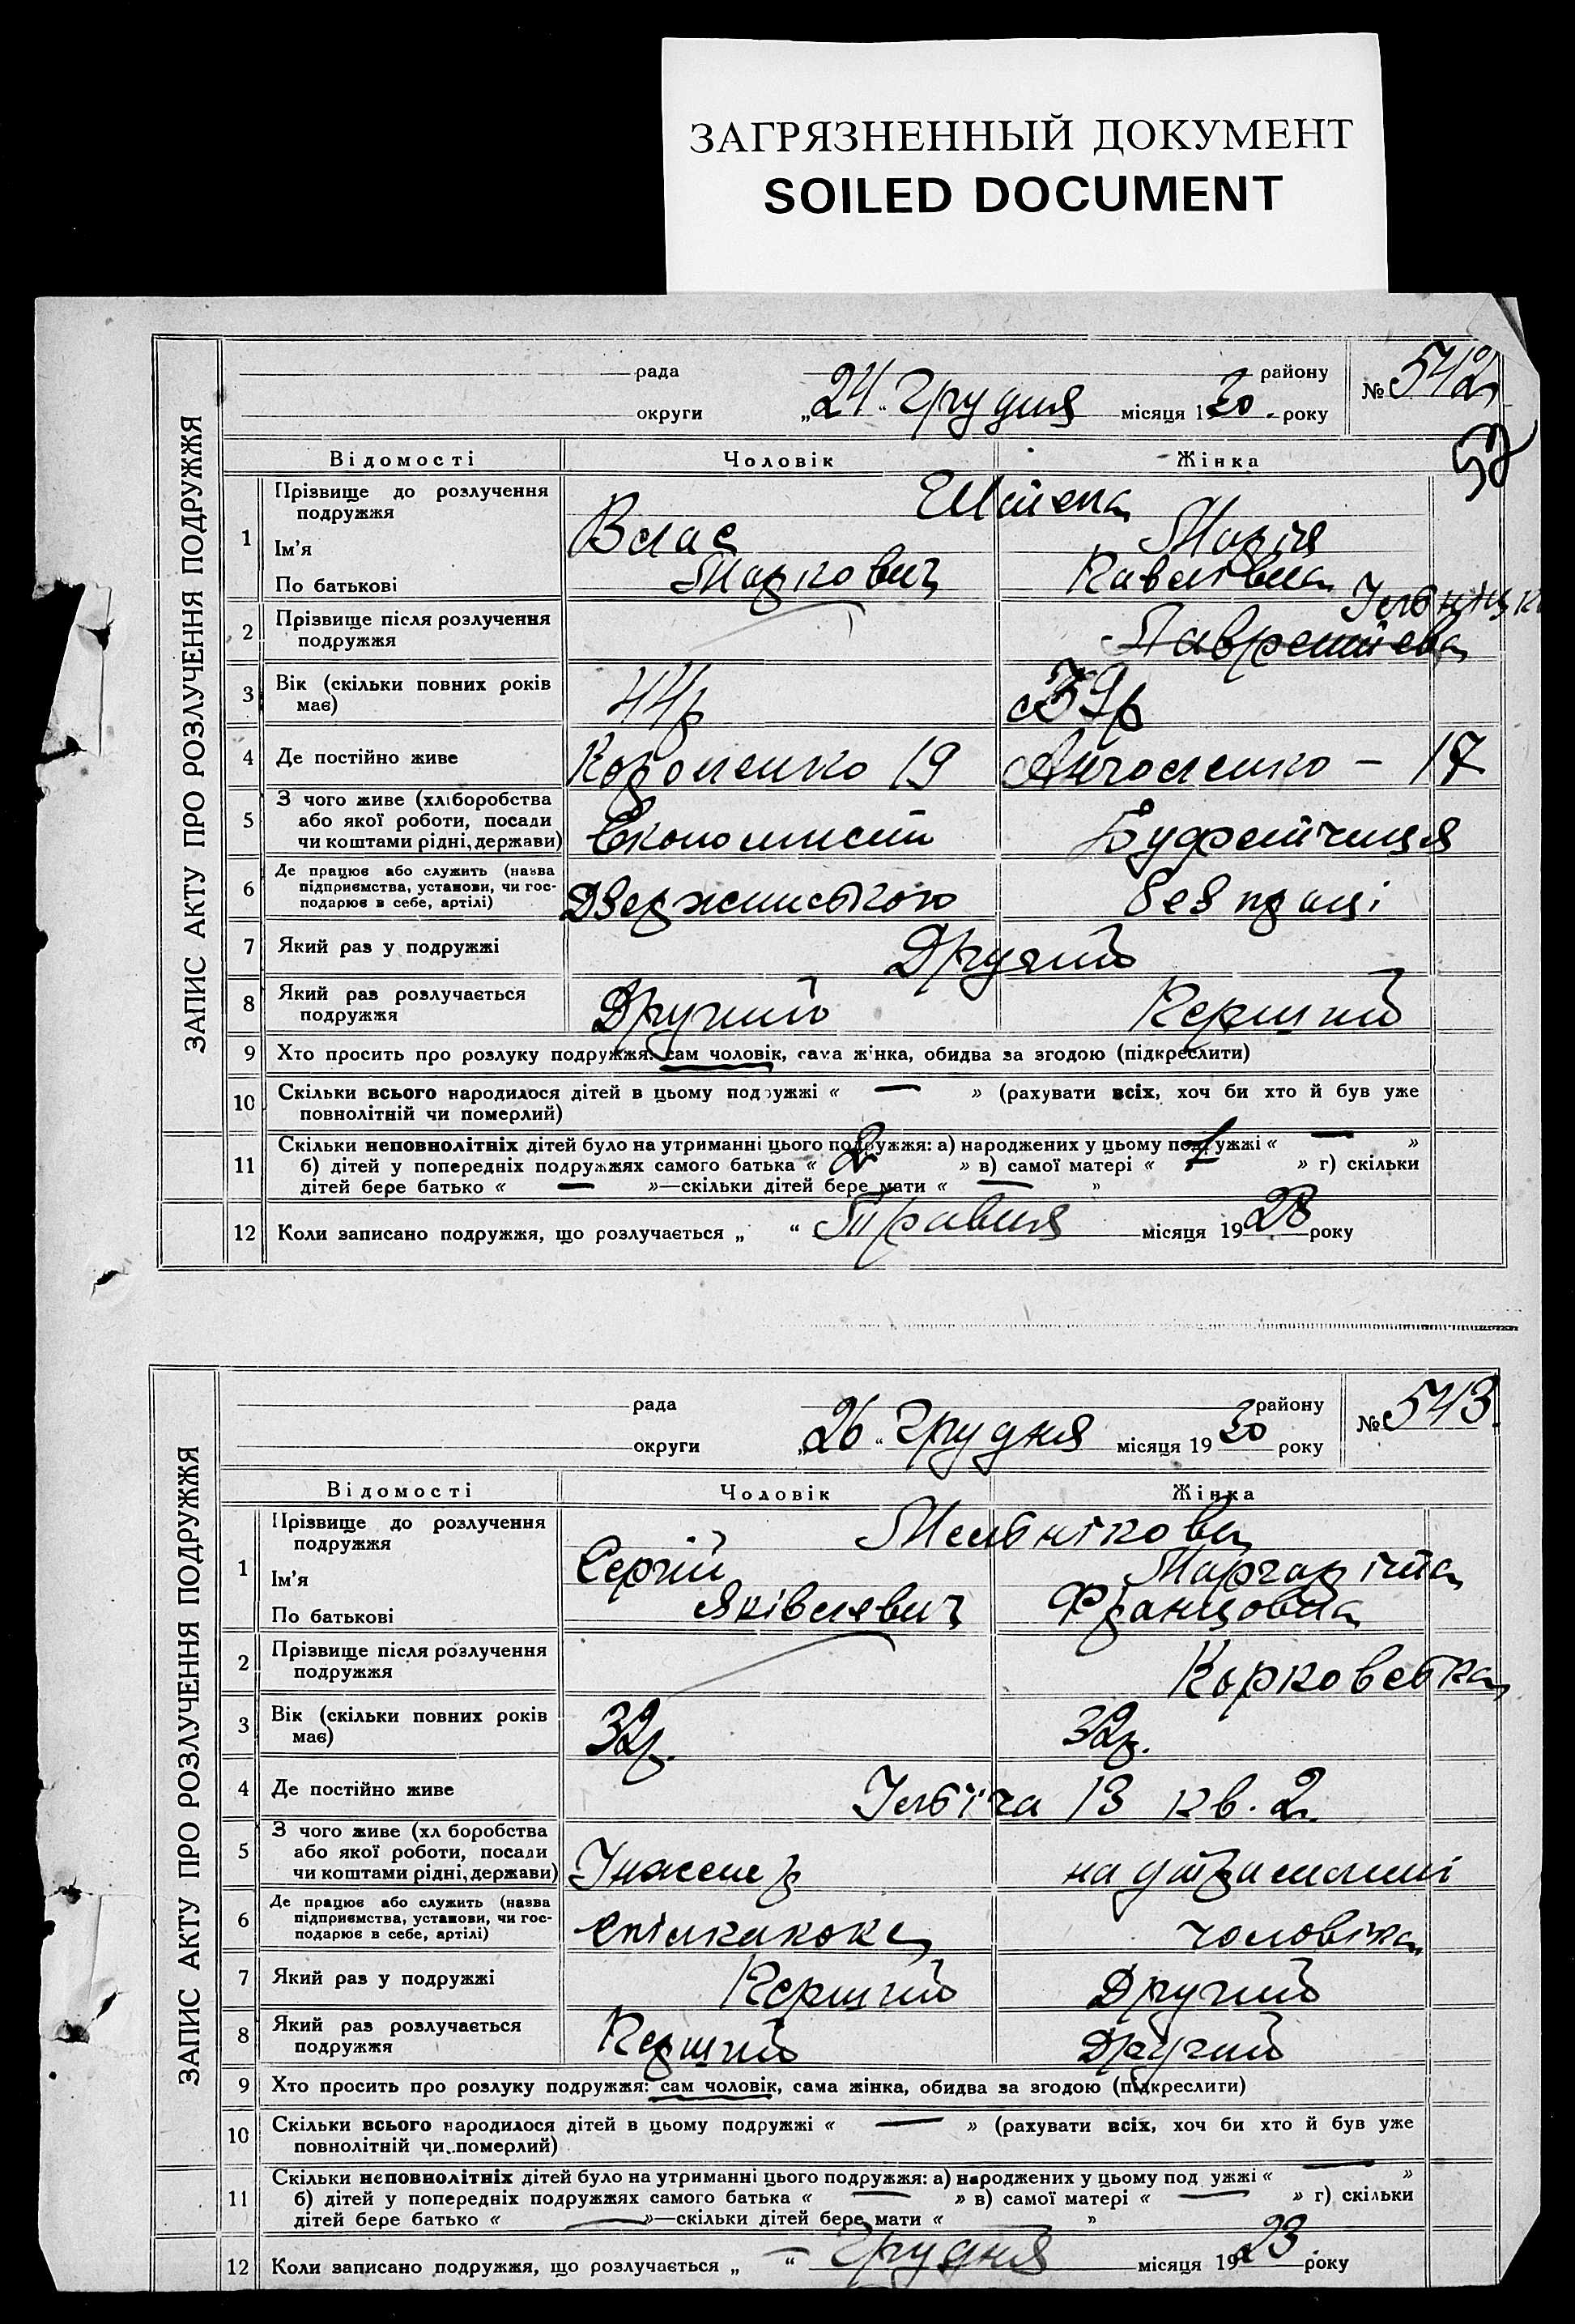 ЗАГРЯЗНЕННЫЙ ДОКУМЕНТ
SOILED DOCUMENT
ЗАПИС АКТУ ПРО РОЗЛУЧЕННЯ ПОДРУЖЖЯ
рада району № 542
округи „24“ Грудня місяця 1930 року
52
Відомості Чоловік Жінка
1 Прізвище до розлучення подружжя
Ім'я Влас Марія
По батькові Маркович Павлівна
2 Прізвище після розлучення
подружжя
3 Вік (скільки повних років 44р 39р
має)
4 Де постійно живе Короленко 19 17
5 З чого живе (хліборобства
або якої роботи, посади
чи коштами рідні, держави) Економист Буфетчиця
6 Де працює або служить (назва
підприємства, установи, чи гос-
подарює в себе, артілі) Дзержинського без праці
7 Який раз у подружжі Другий
8 Який раз розлучається
подружжя Другий Перший
9 Хто просить про розлуку подружжя: сам чоловік, сама жінка, обидва за згодою (підкреслити)
10 Скільки всього народилося дітей в цьому подружжі « — » (рахувати всіх, хоч би хто й був уже
повнолітній чи померлий)
11 Скільки неповнолітніх дітей було на утриманні цього подружжя: а) народжених у цьому подружжі « — »
б) дітей у попередніх подружжях самого батька « 2 » в) самої матері « 1 » г) скільки
дітей бере батько « — »—скільки дітей бере мати « — »
12 Коли записано подружжя, що розлучається „ “ Травня місяця 1928 року
ЗАПИС АКТУ ПРО РОЗЛУЧЕННЯ ПОДРУЖЖЯ
рада району № 543.
округи „26“ Грудня місяця 1930 року
Відомості Чоловік Жінка
1 Прізвище до розлучення
подружжя Мельнікова
Ім'я Сергій Маргаріта
По батькові Яківлевич Францовна
2 Прізвище після розлучення
подружжя
3 Вік (скільки повних років 32р. 32р.
має)
4 Де постійно живе Ілліча 13 кв. 2
5 З чого живе (хл боробства
або якої роботи, посади
чи коштами рідні, держави) Інженер на утриманні
6 Де працює або служить (назва
підприємства, установи, чи гос-
подарює в себе, артілі) чоловіка
7 Який раз у подружжі Перший Другий
8 Який раз розлучається
подружжя Перший Другий
9 Хто просить про розлуку подружжя: сам чоловік, сама жінка, обидва за згодою (підкреслити)
10 Скільки всього народилося дітей в цьому подружжі « — » (рахувати всіх, хоч би хто й був уже
повнолітній чи померлий)
11 Скільки неповнолітніх дітей було на утриманні цього подружжя: а) народжених у цьому под ужжі « — »
б) дітей у попередніх подружжях самого батька « — » в) самої матері « — » г) скільки
дітей бере батько « — »—скільки дітей бере мати « — »
12 Коли записано подружжя, що розлучається „ — “ Грудня місяця 1923 року